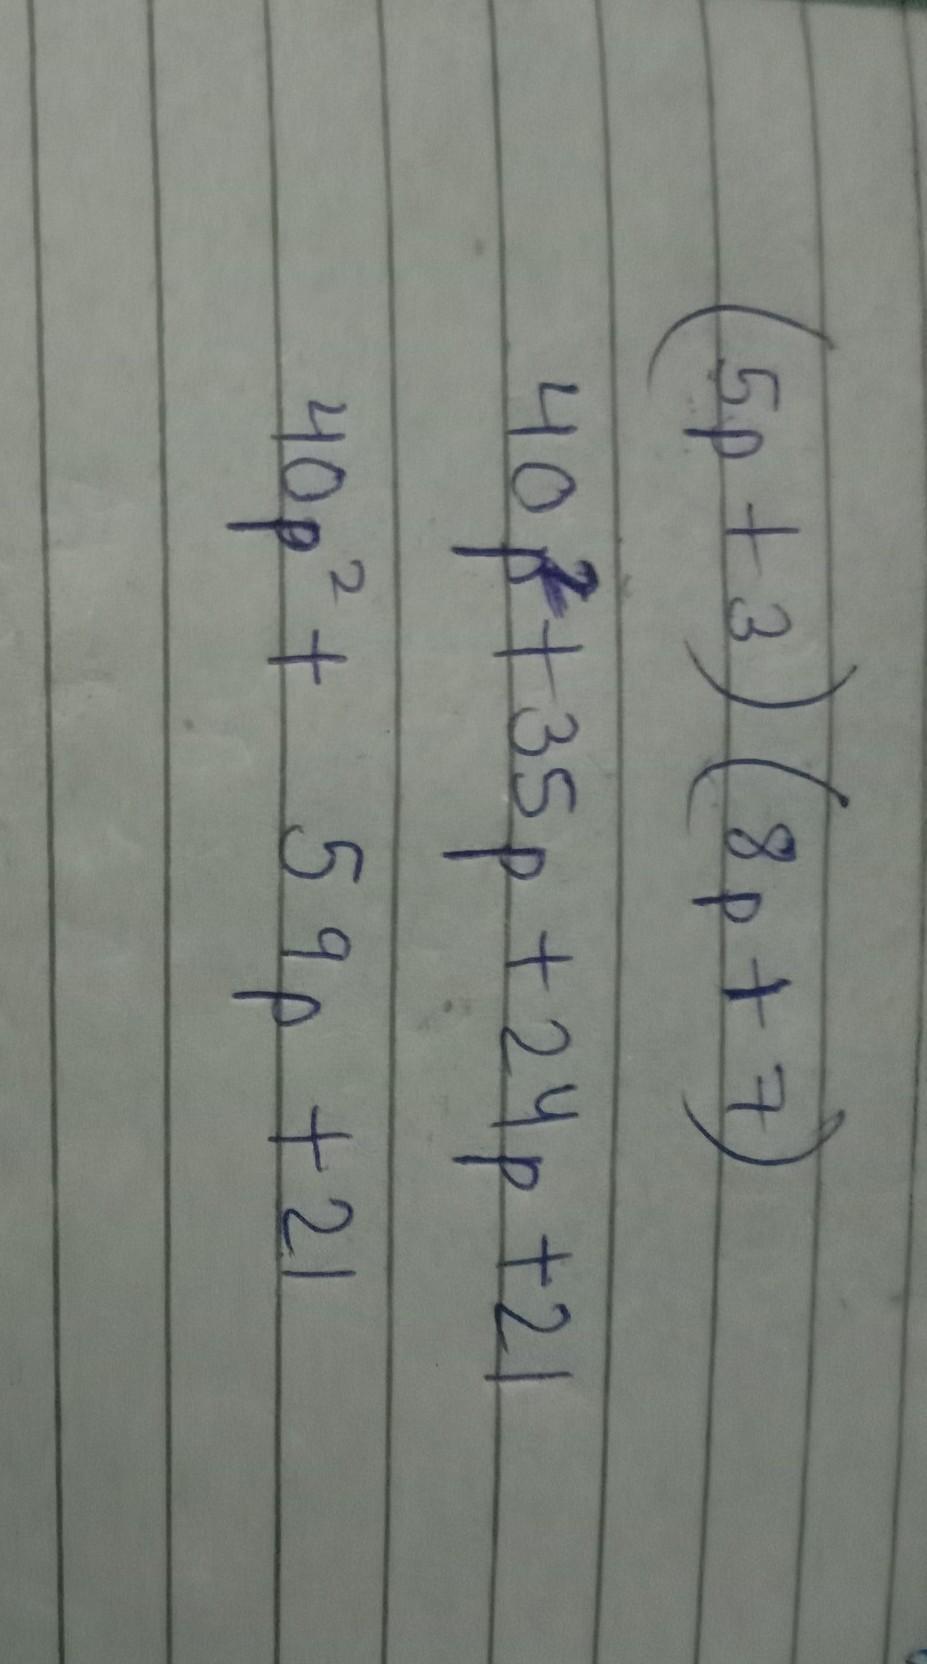 (5p + 3) (8p + 7)
40p² + 35p + 24p + 21
40p² + 59p + 21